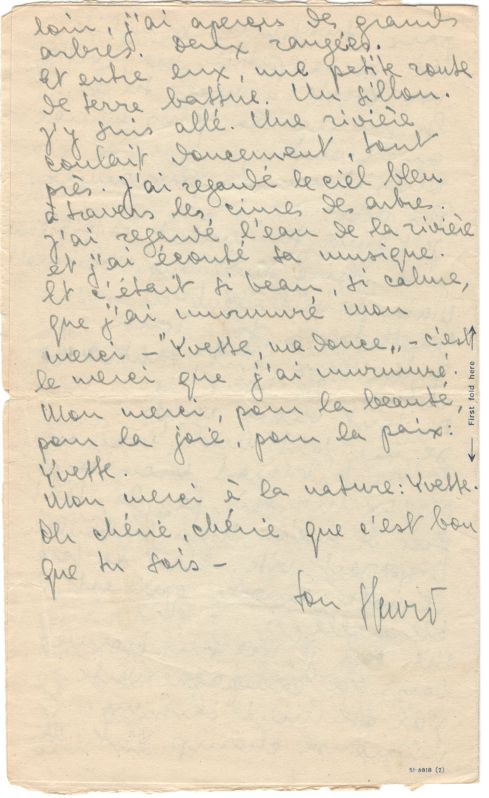 loin, j'ai aperçu des grands
arbres. Deux rangées.
Et entre eux, une petite route
de terre battue. Un sillon.
J'y suis allé. Une rivière
coulait doucement, tout
près. J'ai regardé le ciel bleu
à travers les cimes des arbres.
J'ai regardé l'eau de la rivière
et j'ai écouté sa musique.
Et c'était si beau, si calme,
que j'ai murmuré mon
merci - "Yvette, ma douce„ - c'est
le merci que j'ai murmuré.
Mon merci, pour la beauté,
pour la joie, pour la paix:
Yvette.
Mon merci à la nature: Yvette.
Oh chérie, chérie que c'est bon
que tu sois -
ton
First fold here
51-6818 (2)